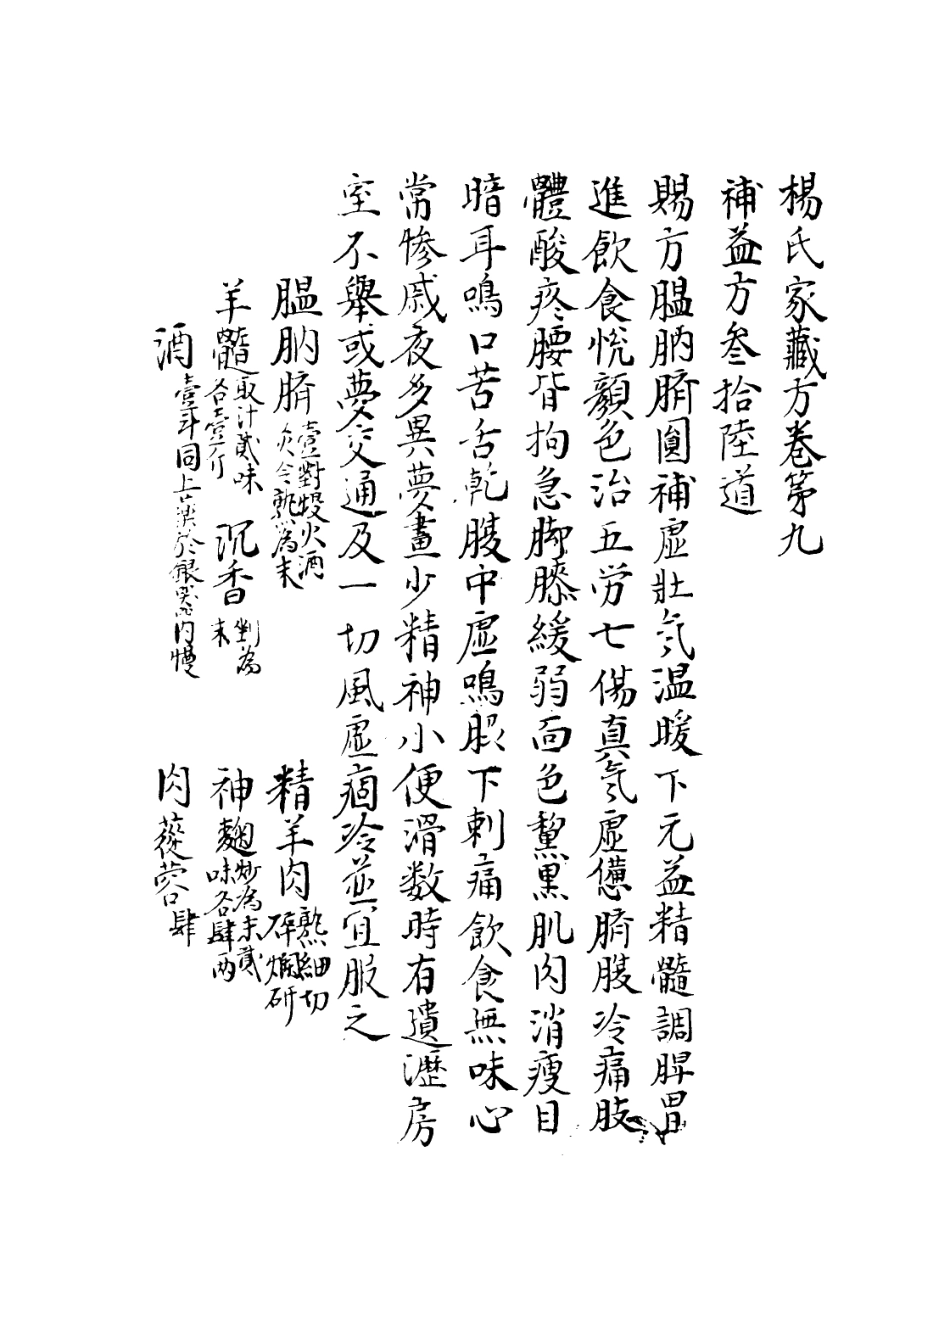 楊氏家藏方卷第九
補益方叁拾陸道
賜方膃肭臍圓補虛壯氣温暖下元益精髓調脾胃
進飲食悅顏色治五労七傷真氣虛憊臍腹冷痛肢
體酸疼腰背拘急脚膝緩弱面色黧黒肌肉消瘦目
暗耳鳴口苦舌乾腹中虛鳴脇下刺痛飲食無味心
常慘戚夜多異夢晝少精神小便滑数時有遺瀝房
室不舉或夢交通及一切風虛痼冷並宜服之
膃肭臍壹對慢火酒炙令熟為末 精羊肉熟細切碎爛研
羊髓取汁貳味各壹斤 沉香剉為末 神麴炒為末貳味各肆两
酒壹斗同上藥於銀器內慢 肉蓯蓉肆